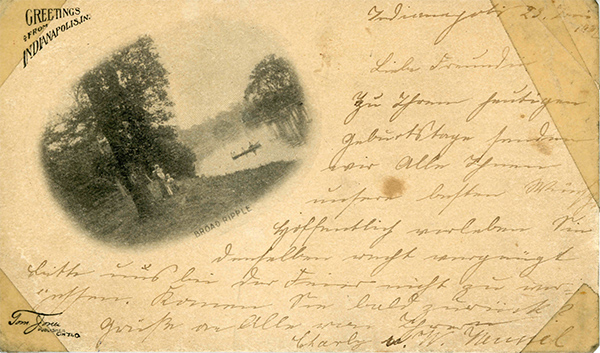 GREETINGS
FROM
INDIANAPOLIS. IN.
Indianapolis 23.
Liebe Freundin
Zu Ihrem heutigen
Geburtstage senden
wir Alle Ihnen
unsere besten
Hoffentlich verleben Sie
denselben recht vergnügt
bitte uns bei der Feier nicht zu ver-
gessen. Kommen Sie bald zurück
Grüße an Alle von Ihrem
Charly u. W.
BROAD RIPPLE
Tom Jones